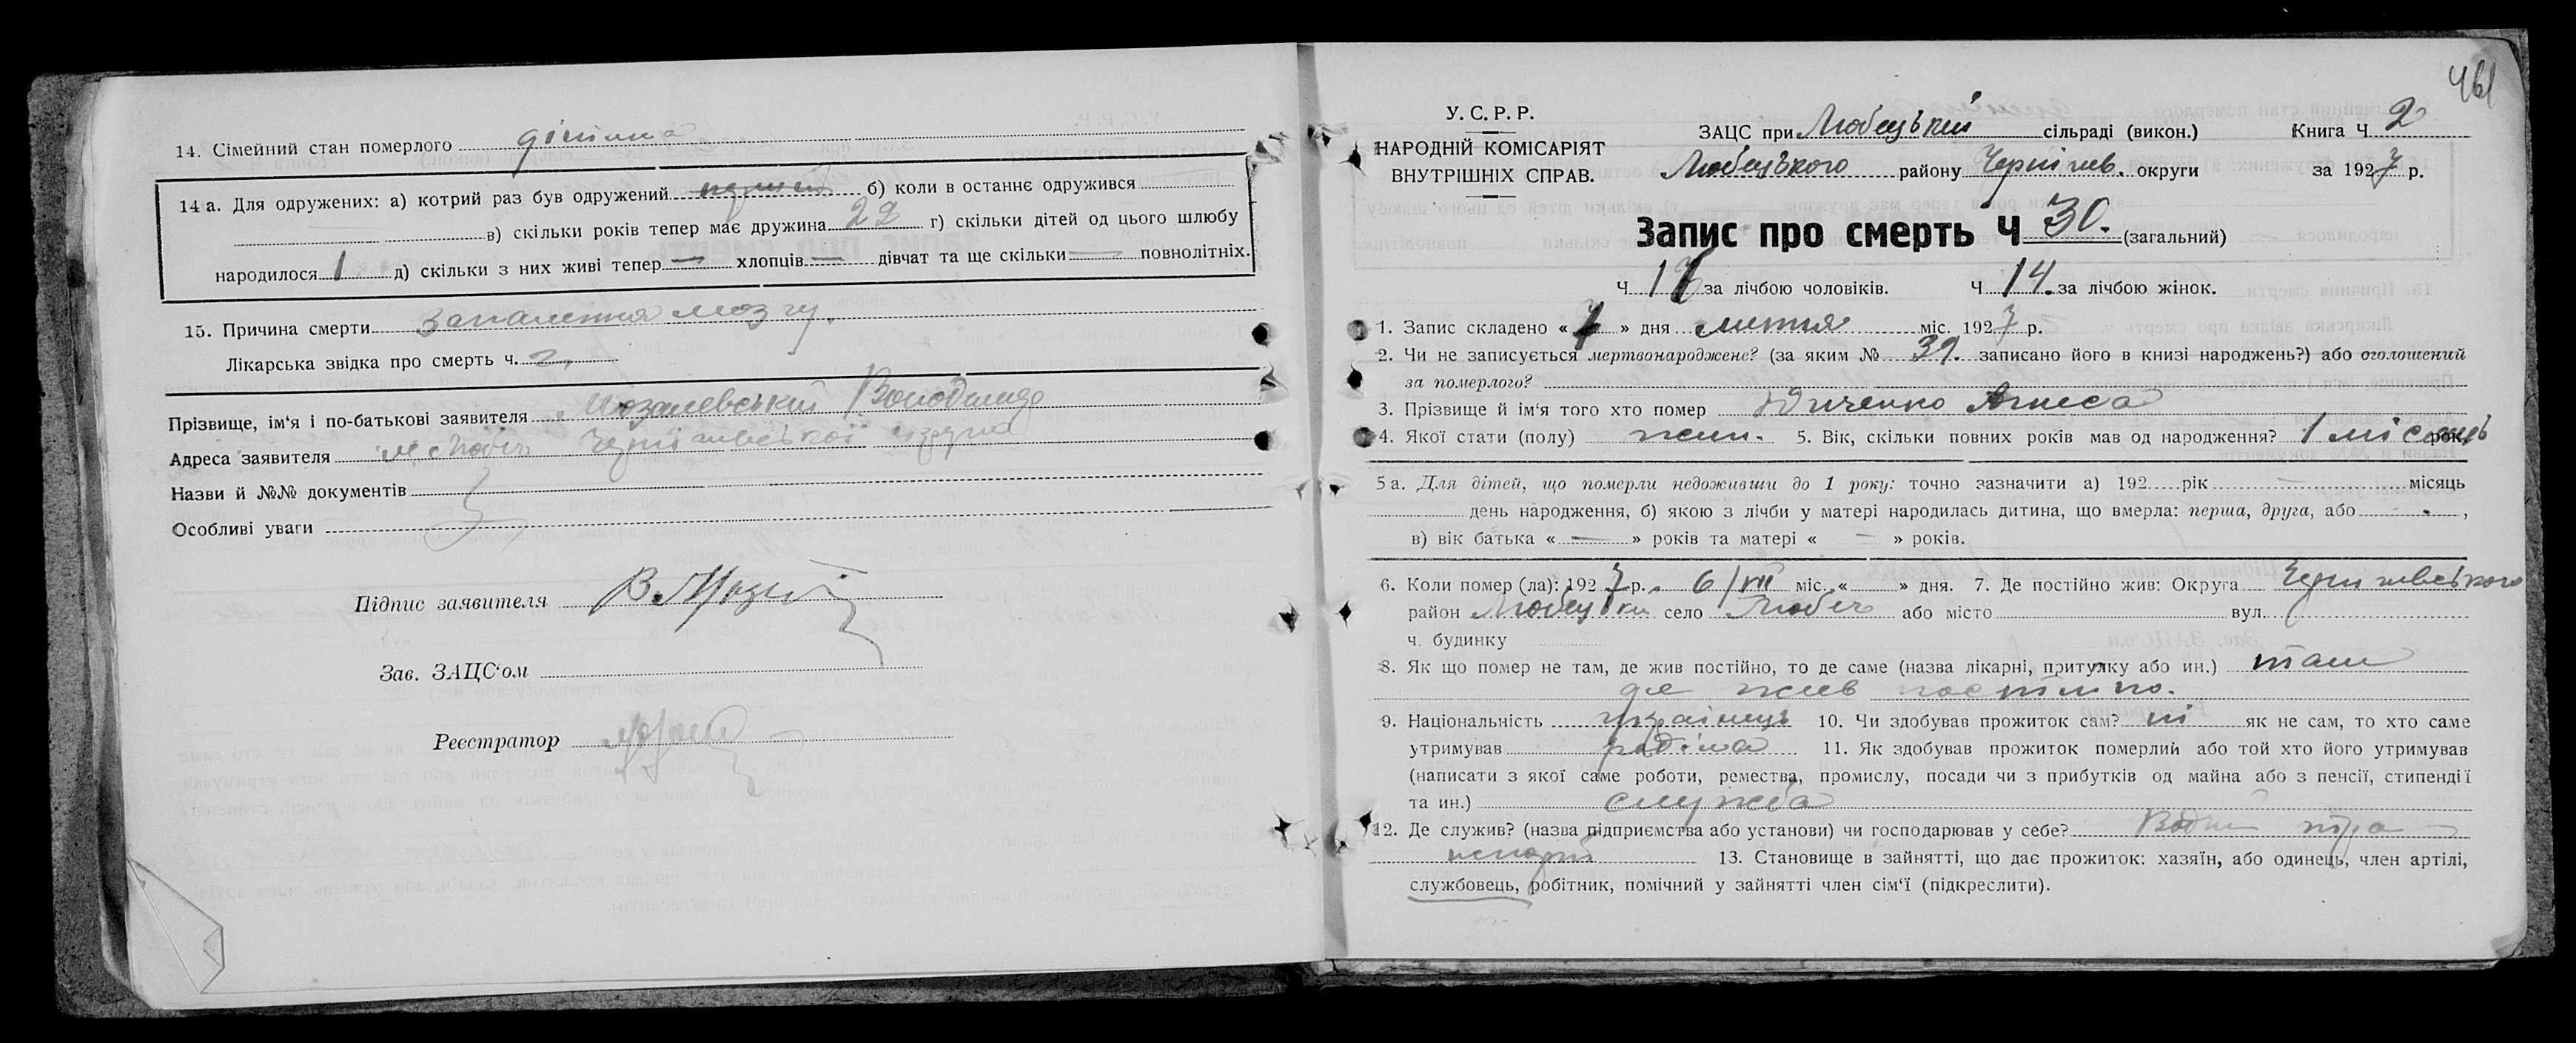 14. Сімейний стан померлого дитина
14 а. Для одружених: а) котрий раз був одружений б) коли в останнє одружився
в) скільки років тепер має дружина 22 г) скільки дітей од цього шлюбу
народилося 1 д) скільки з них живі тепер — хлопців — дівчат та ще скільки — повнолітніх.
15. Причина смерти запалення мозгу.
Лікарська звідка про смерть ч.
Прізвище, ім'я і по-батькові заявителя Володимир
Адреса заявителя м. Любеч Чернігівської округи
Назви й №№ документів
Особливі уваги
Підпис заявителя
Зав. ЗАЦС'ом
Реєстратор
461
У. С. Р. Р.
НАРОДНІЙ КОМІСАРІЯТ
ВНУТРІШНІХ СПРАВ.
ЗАЦС при Любецький сільраді (викон.) Книга Ч 2
Любецького району Чернігів. округи за 1927 р.
Запис про смерть Ч 30. (загальний)
Ч 16 за лічбою чоловіків. Ч 14. за лічбою жінок.
1. Запис складено « 7 » дня липня міс. 1927 р.
2. Чи не записується мертвонароджене? (за яким № 39. записано його в книзі народжень?) або оголошений
за померлого?
3. Прізвище й ім'я того хто помер Юрченко Агнеса
4. Якої стати (полу) жін. 5. Вік, скільки повних років мав од народження? 1 місяць рок.
5 а. Для дітей, що померли недоживши до 1 року: точно зазначити а) 192 рік — місяць
день народження, б) якою з лічби у матері народилась дитина, що вмерла: перша, друга, або - ,
в) вік батька « — » років та матері « — » років.
6. Коли помер (ла): 1927 р. 6/VII міс. « » дня. 7. Де постійно жив: Округа Чернігівського
район Любецьки село Любеч або місто вул.
ч. будинку
8. Як що помер не там, де жив постійно, то де саме (назва лікарні, притулку або ин.) там
де жив постійно.
9. Національність українець 10. Чи здобував прожиток сам? ні як не сам, то хто саме
утримував родіна 11. Як здобував прожиток померлий або той хто його утримував
(написати з якої саме роботи, ремества, промислу, посади чи з прибутків од майна або з пенсії, стипендії
та ин.) служба
12. Де служив? (назва підприємства або установи) чи господарював у себе?
13. Становище в зайнятті, що дає прожиток: хазяїн, або одинець, член артілі,
службовець, робітник, помічний у зайнятті член сім'ї (підкреслити).